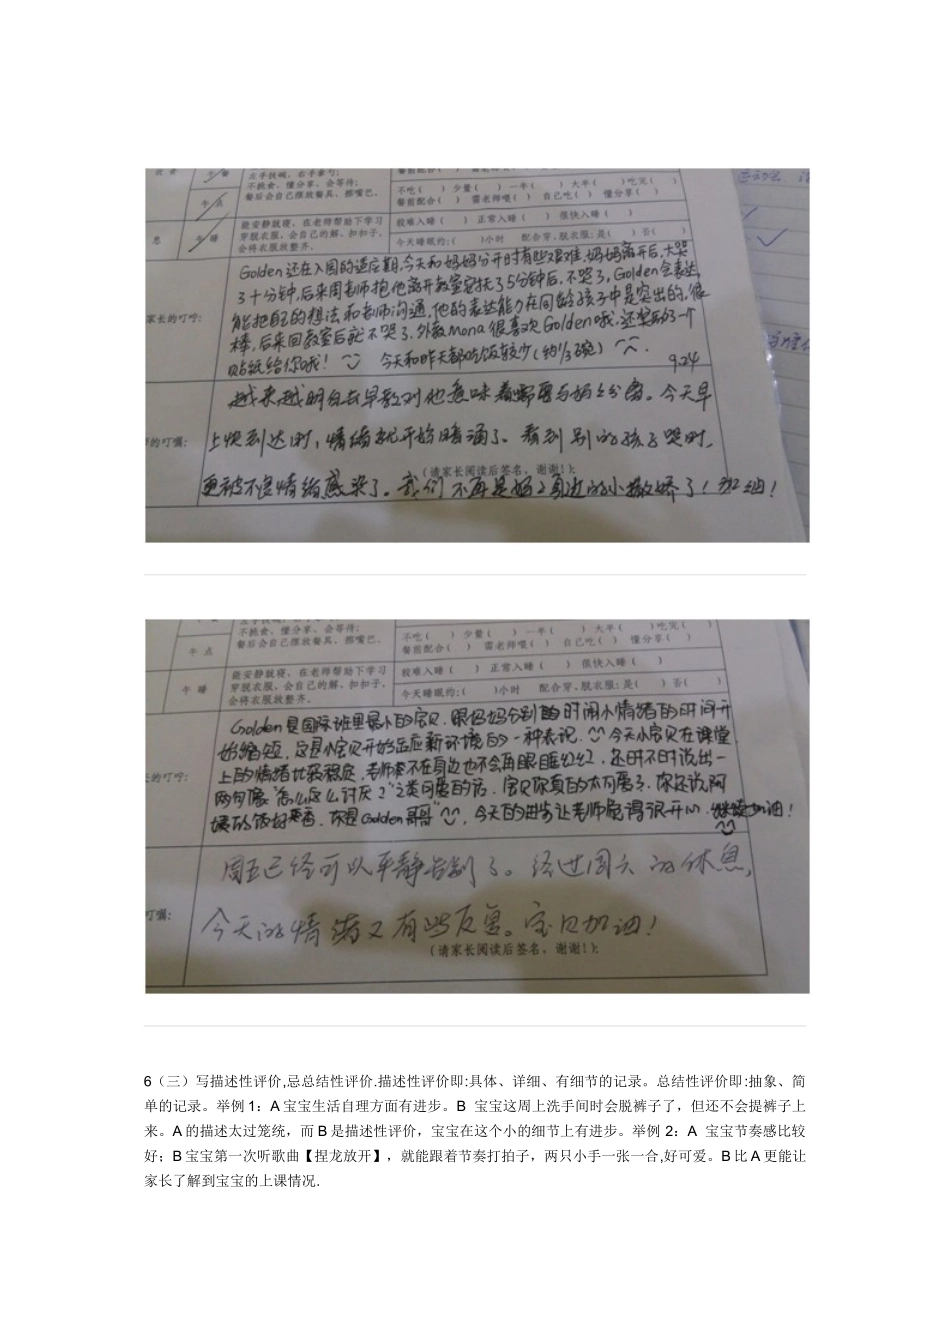 午餐
左手扶碗、右手拿勺;
不挑食、懂分享、会等待;
餐后会自己摆放餐具、擦嘴巴。
午点
不吃( ) 少量( ) 一半( ) 大半( ) 吃完( )
餐前配合( ) 需老师喂( ) 自己吃( ) 懂分享( )
息
午睡
能安静就寝、在老师帮助下学习
穿脱衣服、会自己的解、扣扣子,
会将衣服放整齐。
较难入睡( ) 正常入睡( ) 很快入睡( )
今天睡眠约:( )小时 配合穿、脱衣服:是( ) 否( )
家长的叮咛:
Golden还在入园的适应期,今天和妈妈分开时有些艰难,妈妈离开后,大哭
了十分钟,后来周老师抱他离开教室安抚了5分钟后,不哭了,Golden会表达,
能把自己的想法和老师沟通,他的表达能力在同龄孩子中是突出的,很
棒,后来回教室后就不哭了,外教Mona很喜欢Golden哦,还奖励了一个
贴纸给你哦! 今天和昨天都吃饭较少(约1/3碗)
9.24
的叮嘱:
越来越明白去早教对他意味着需要与妈妈分离。今天早
上快到达时,情绪就开始暗涌了。看到别的孩子哭时,
(请家长阅读后签名,谢谢!):
更被不良情绪感染了。我们不再是妈妈身边的小撒娇了!加油!
左手扶碗、右手拿勺;
不挑食、懂分享、会等待;
餐后会自己摆放餐具、擦嘴巴。
午点
不吃( ) 少量( ) 一半( ) 大半( ) 吃完( )
餐前配合( ) 需老师喂( ) 自己吃( ) 懂分享( )
午睡
能安静就寝、在老师帮助下学习
穿脱衣服、会自己的解、扣扣子,
会将衣服放整齐。
较难入睡( ) 正常入睡( ) 很快入睡( )
今天睡眠约:( )小时 配合穿、脱衣服:是( ) 否( )
的叮咛:
Golden是国际班里最小的宝贝,跟妈妈分别的时闹小情绪的时间开
始缩短,这是小宝贝开始适应新环境的一种表现。今天小宝贝在课堂
上的情绪比较稳定,老师牵不在身边也不会再眼眶红红,还时不时说出一
两句像"怎么怎么讨厌"之类可爱的话,宝贝你真的太可爱了,你还说阿
姨的饭好美香,你是Golden哥哥",今天的进步让老师觉得很开心,继续加油!
叮嘱:
周五已经可以平静告别了。经过周六的休息,
今天的情绪又有些反复。宝贝加油!
(请家长阅读后签名,谢谢!):
6（三）写描述性评价,忌总结性评价.描述性评价即:具体、详细、有细节的记录。总结性评价即:抽象、简
单的记录。举例 1：A 宝宝生活自理方面有进步。B 宝宝这周上洗手间时会脱裤子了，但还不会提裤子上
来。A 的描述太过笼统，而 B 是描述性评价，宝宝在这个小的细节上有进步。举例 2：A 宝宝节奏感比较
好；B 宝宝第一次听歌曲【捏龙放开】，就能跟着节奏打拍子，两只小手一张一合,好可爱。B 比 A 更能让
家长了解到宝宝的上课情况.